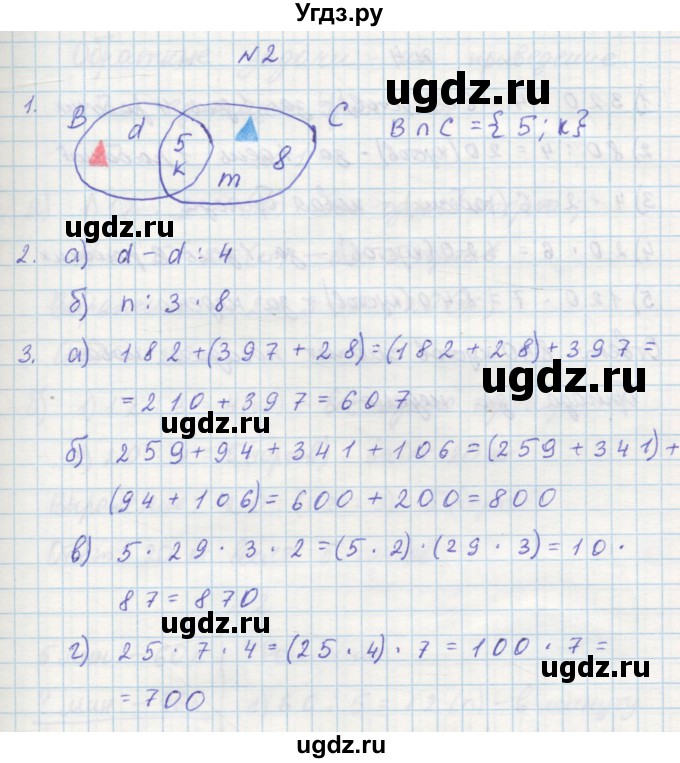 Угдз.ру
№2
ugdz.ru
1. B d 5 k m 8 C B ∩ C = {5; k}
ugdz.ru
ugdz.ru
2. а) d - d : 4
б) n : 3 · 8
3. а) 182 + (397 + 28) = (182 + 28) + 397 =
ugdz.ru
= 210 + 397 = 607
ugdz.ru
б) 259 + 94 + 341 + 106 = (259 + 341) +
(94 + 106) = 600 + 200 = 800
в) 5 · 29 · 3 · 2 = (5 · 2) · (29 · 3) = 10 ·
87 = 870
ugdz.ru
г) 25 · 7 · 4 = (25 · 4) · 7 = 100 · 7 =
ugdz.ru
= 700
ugdz.ru